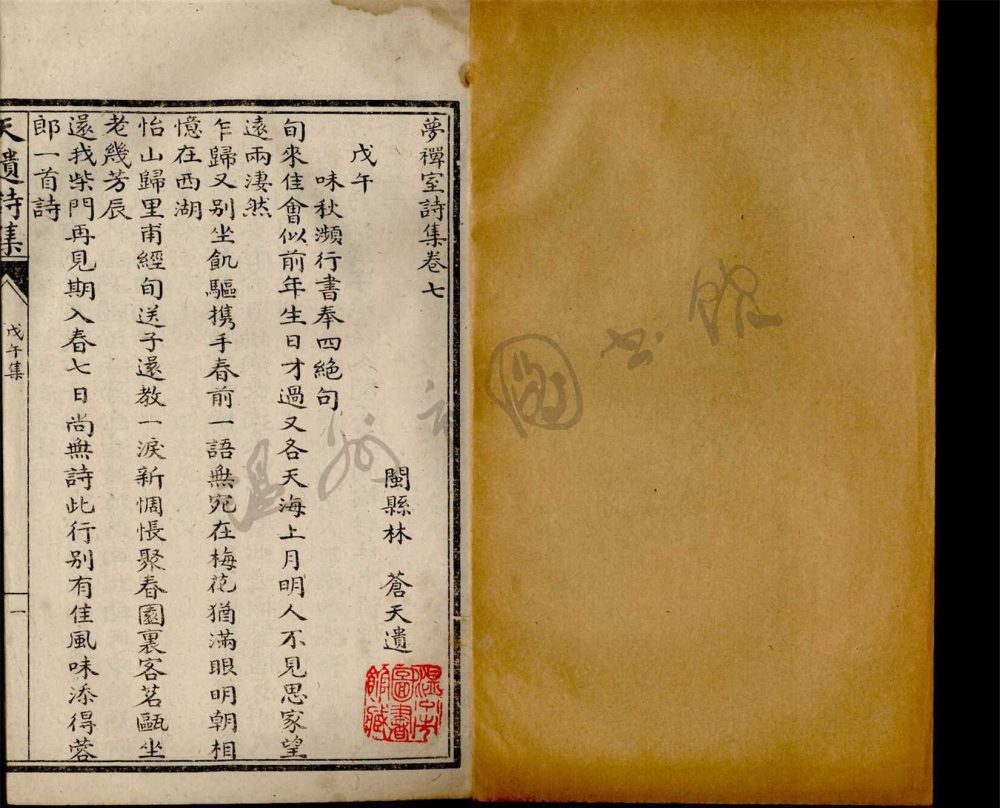 夢禪室詩集卷七
閩縣林 蒼天遺
戊午
味秋瀕行書奉四絕句
旬來佳會似前年生日才過又各天海上月明人不見思家望
遠兩淒然
乍歸又别坐飢驅携手春前一語無宛在梅花猶滿眼明朝相
憶在西湖
怡山歸里甫經旬送子還教一淚新惆悵聚春園裏客茗甌坐
老幾芳辰
還我柴門再見期入春七日尚無詩此行别有佳風味添得蓉
郎一首詩
天遺詩集
戊午集
一
溫州市圖書館藏
温州市圖书館